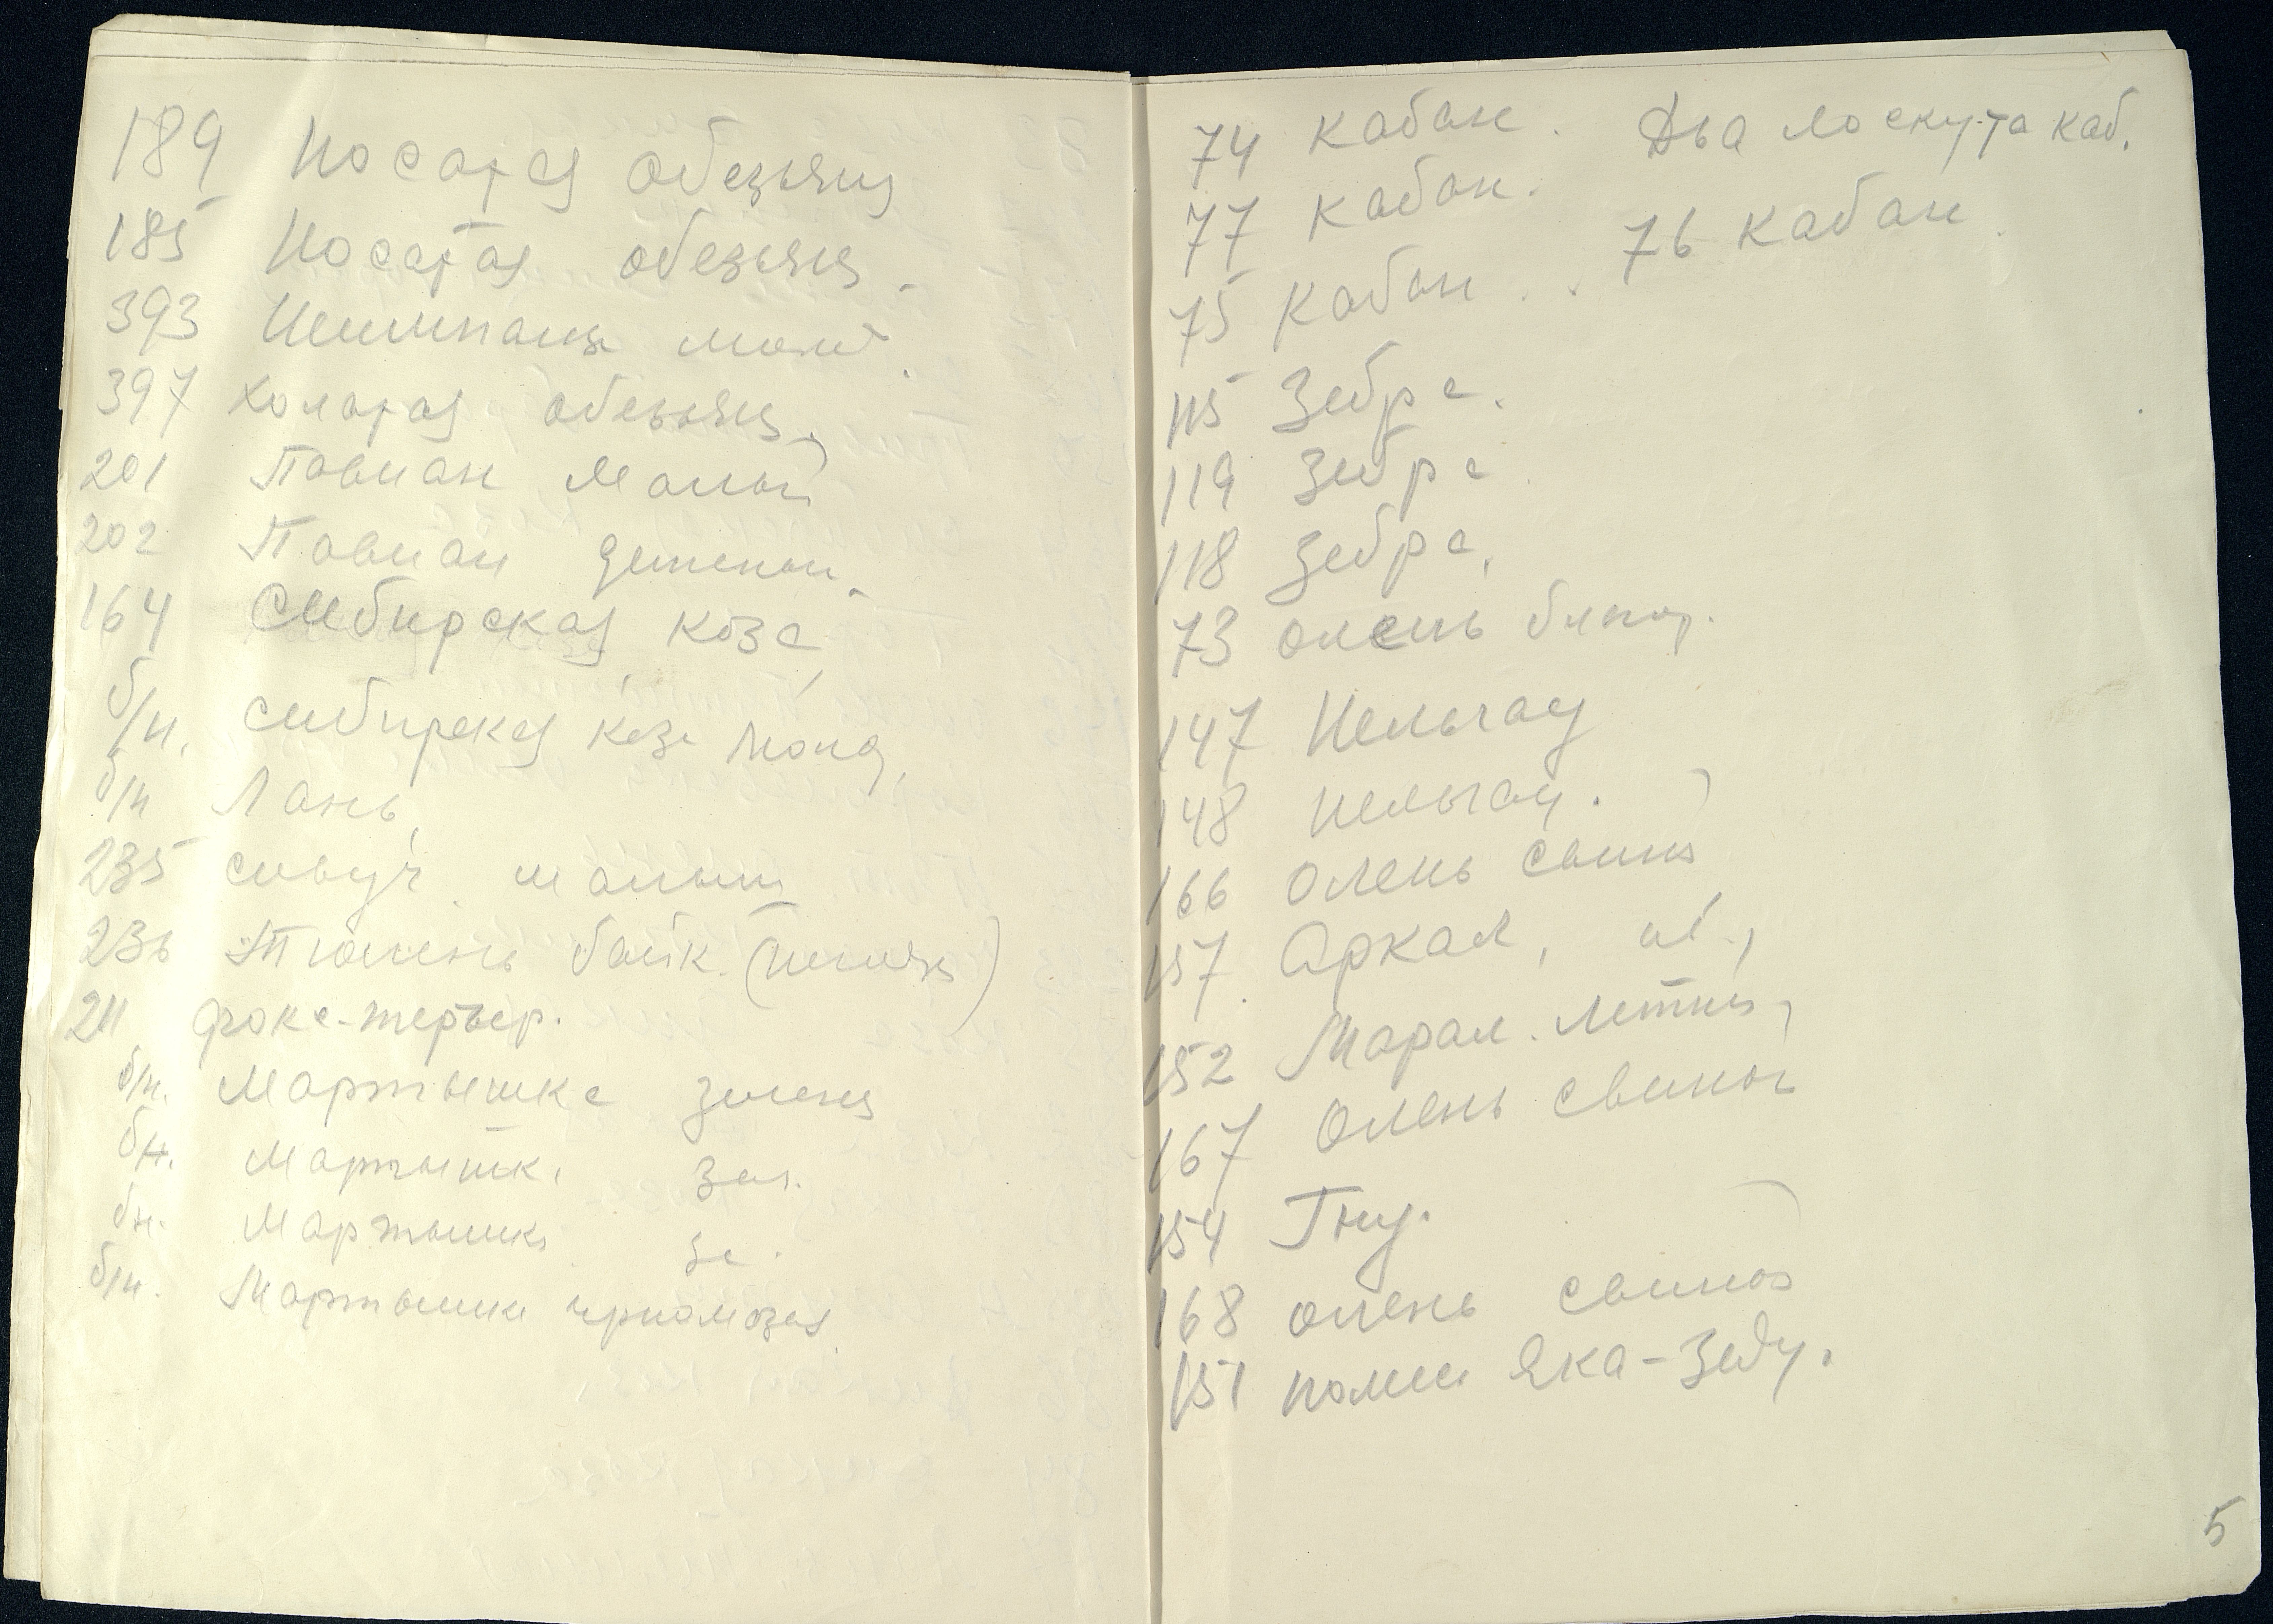 189 Носатая обезьяна
185 Носатая обезьяна.
393 Шимпанзе молод.
397 Хохлатая обезьяна,
201 Павиан малый
202 Павиан детеныш.
164 Сибирская коза,
б/н. сибирская коза молод,
б/н Лань,
235 сивуч малыш
236 Тюлень байк. (тюлень)
211 фокс-терьер.
б/н. Мартышка зелена
бн. Мартышк. зел.
бн. Мартышк. зе.
б/н. Мартышка
74 кабан. Два лоскута каб.
77 кабан.
75 кабан.. 76 кабан.
115 Зебра.
119 Зебра.
118 Зебра.
73 олень благор.
147 Нельгау
148 нельгау.
166 олень свиной
157. Аркал,
152 Марал. летний,
167 олень свиной
154 Гну.
168 олень свиной
151 помесь Яка-Зебу.
5